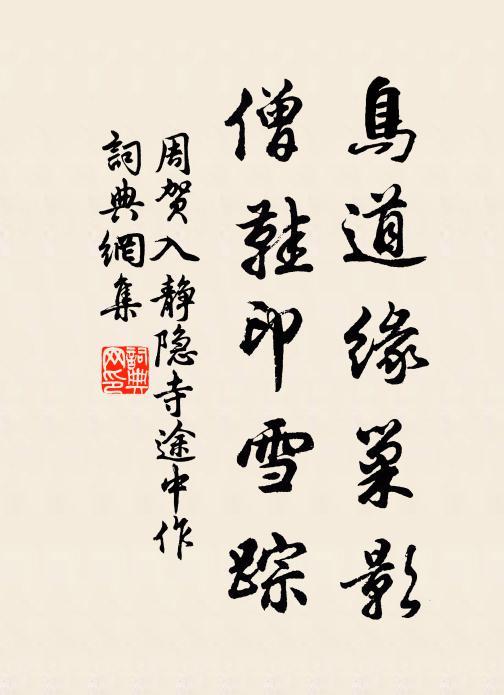 鳥道緣巢影
僧鞋印雪踪
周贺入静隐寺途中作
詞典網集
詞典网印